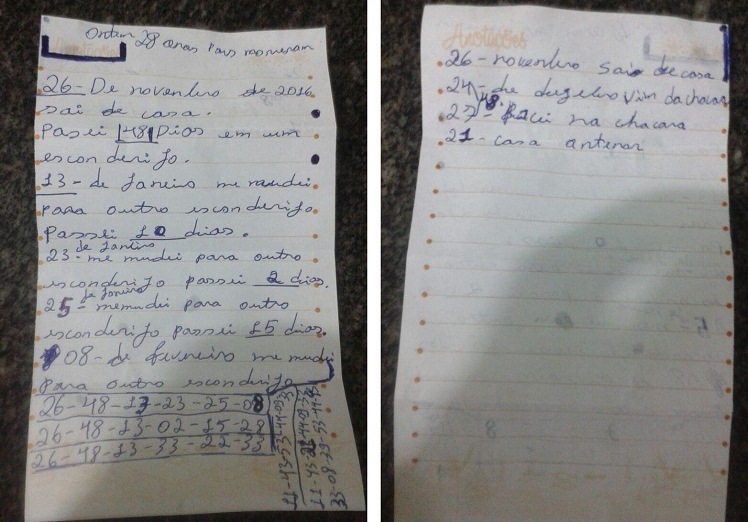 Ontem 28 anos
26- De novembro de 2016
sai de casa.
Passei 48 Dias em um
esconderijo.
13- de Janeiro me mudei
para outro esconderijo
Passei 10 dias.
de Janeiro
23- me mudei para outro
esconderijo passei 2 dias.
de Janeiro
25- me mudei para outro
esconderijo passei 15 dias.
08- de fevereiro me mudei
para outro esconderijo
26-48-13-23-25-08
26-48-13-02-15-28
26-48-13-33-22-33
Anotações
26- novembro sai de casa
24- de vim da chacar
48
na chacara
21- casa antenor